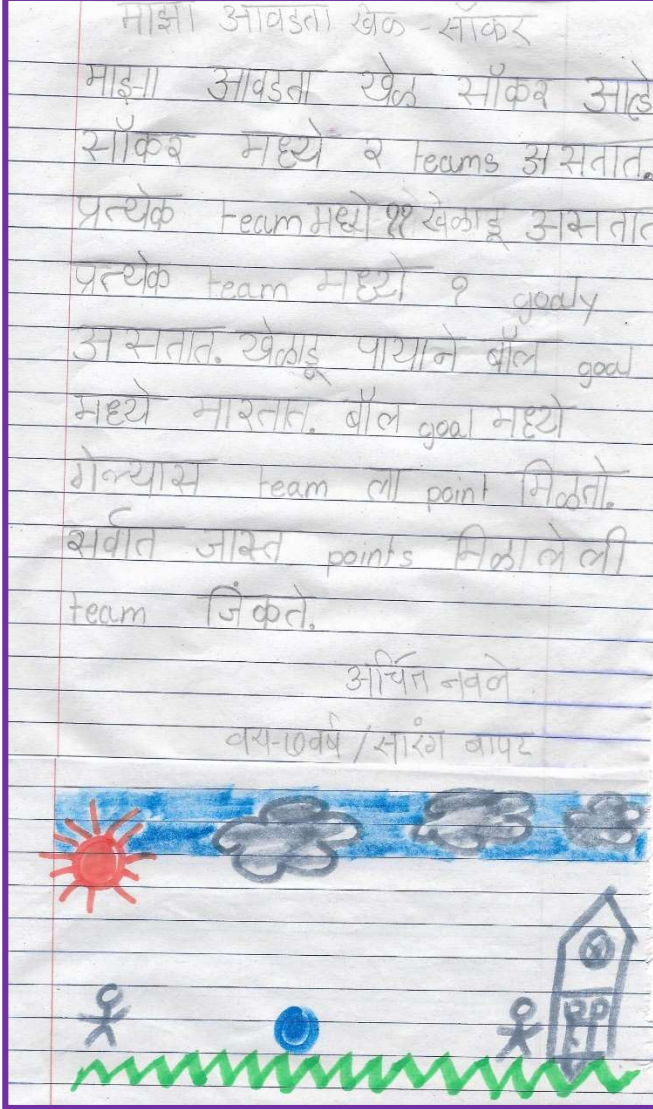 माझा आवडता खेळ - सॉकर
माझा आवडता खेळ सॉकर आहे
सॉकर मध्ये २ teams असतात.
प्रत्येक team मध्ये ११ खेळाडू असतात
प्रत्येक team मध्ये १ goaly
असतात. खेळाडू पायाने बॉल goal
मध्ये मारतात. बॉल goal मध्ये
गेल्यास team ला point मिळतो.
सर्वात जास्त points मिळालेली
team जिंकते.
अर्चित नवले.
वय-७वर्ष / सारंग बापट